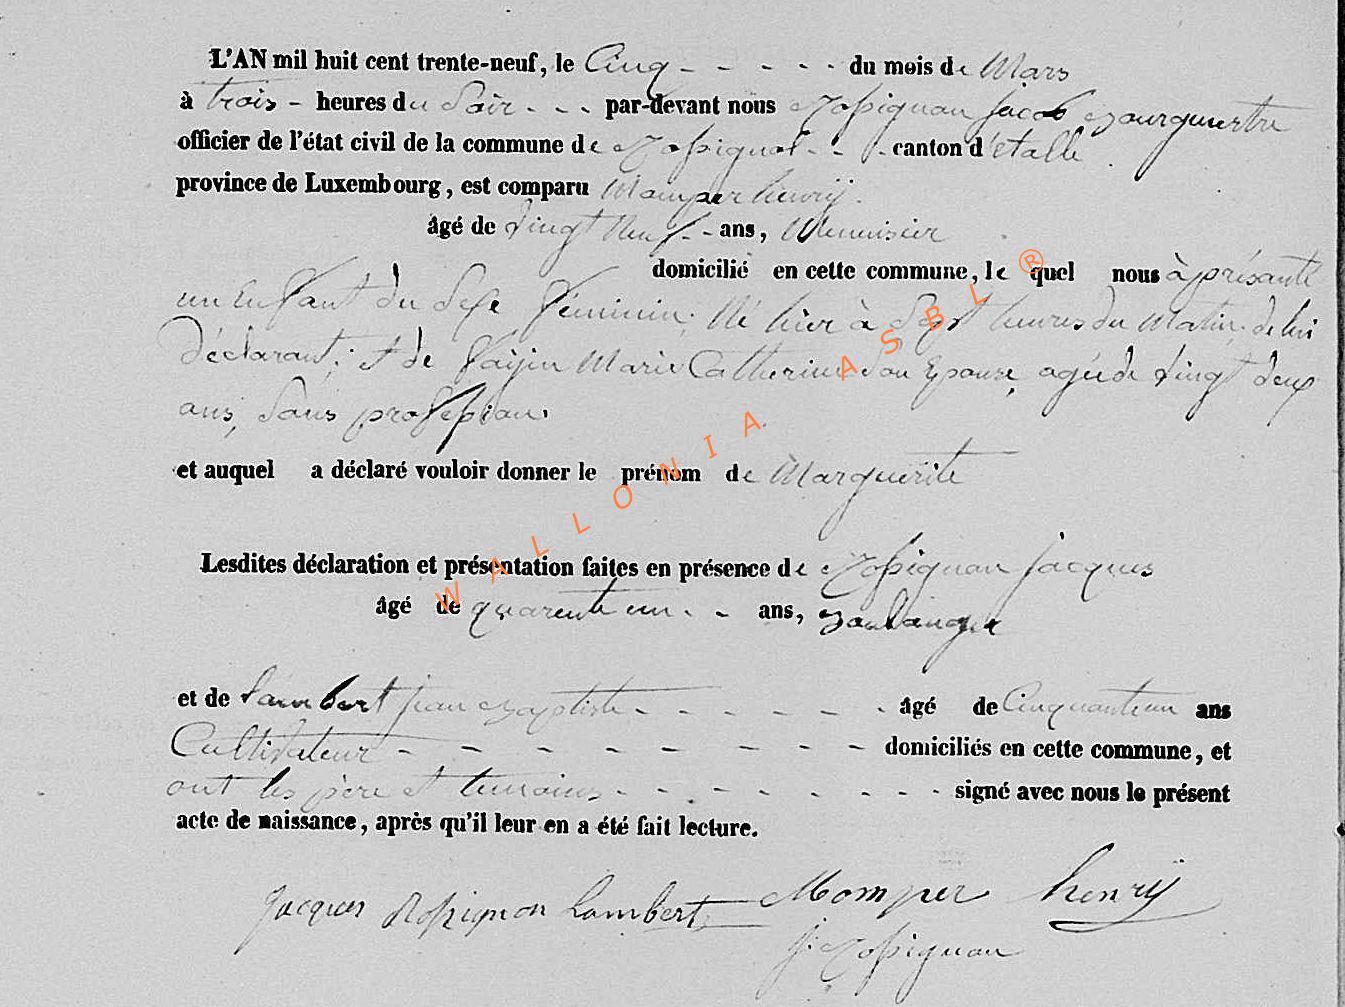 L'AN mil huit cent trente-neuf, le Cinq - - - - - du mois de Mars
à trois - heures du Soir - - - par-devant nous Rossignon jacob Bourguestre
officier de l'état civil de la commune de Rossignol - - - canton d'étalle
province de Luxembourg, est comparu Momper henrÿ.
âgé de Vingt Neuf - - ans, Menuisier
domicilié en cette commune, le quel nous à présanté
un Enfant du Sexe féminin; Né hier à Sept heures du Matin; de lui
déclarant; et de Marie Catherine Son Epouse, agée de Vingt deux
ans, Sans profession.
et auquel a déclaré vouloir donner le prénom de Marguerite
Lesdites déclaration et présentation faites en présence de Rossignon jacques
âgé de quarente un - - ans, Boulanger
et de Lambert jean Baptiste - - - - - - - âgé de Cinquante un ans
Cultivateur - - - - - - - - - - domiciliés en cette commune, et
ont les père et temoins - - - - - - - - - signé avec nous le présent
acte de naissance, après qu'il leur en a été fait lecture.
jacques Rossignon Lambert Momper henrÿ
j: Rossignon
WALLONIA ASBL ®